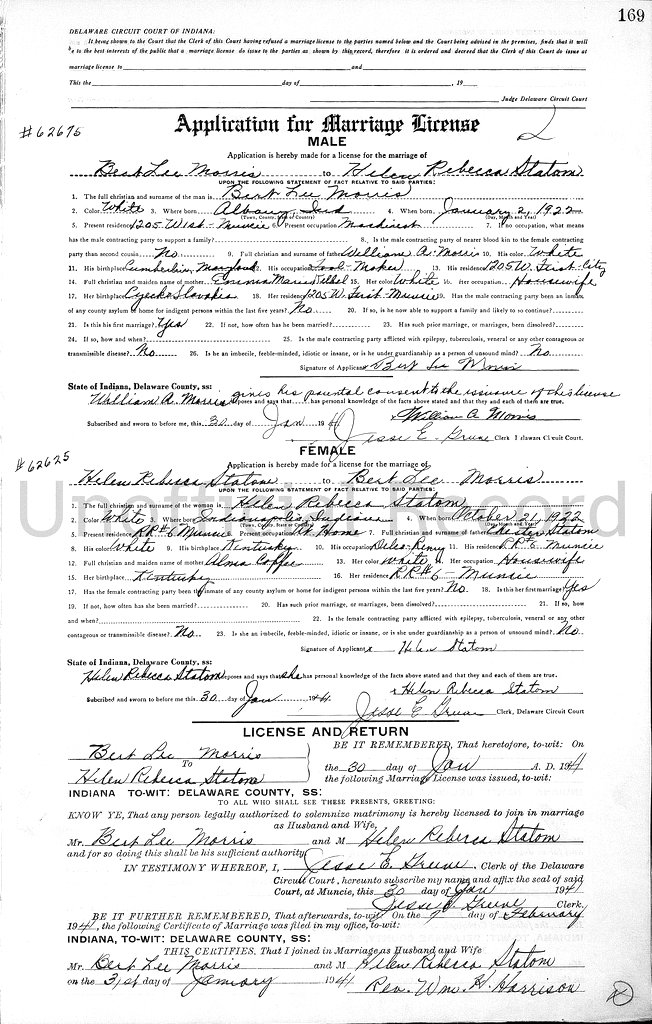 169
DELAWARE CIRCUIT COURT OF INDIANA:
It being shown to the Court that the Clerk of this Court having refused a marriage license to the parties named below and the Court being advised in the premises, finds that it will
be to the best interests of the public that a marriage license do issue to the parties as shown by this record, therefore it is ordered and decreed that the Clerk of this Court do issue at
marriage license to and
This the day of , 19
Judge Delaware Circuit Court
#62675
Application for Marriage License
2
MALE
Application is hereby made for a license for the marriage of
Bert Lee Morris to Helen Rebecca Statom
UPON THE FOLLOWING STATEMENT OF FACT RELATIVE TO SAID PARTIES:
1. The full christian and surname of the man is Bert Lee Morris
2. Color White 3. Where born Albany, Ind 4. When born January 2, 1922
(Town, County, State or Country) (Day, Month and Year)
5. Present residence 1205 West - Muncie 6. Present occupation Machinist 7. If no occupation, what means
has the male contracting party to support a family? 8. Is the male contracting party of nearer blood kin to the female contracting
party than second cousin No 9. Full christian and surname of father William A. Morris 10. His color White
11. His birthplace Cumberland, Maryland 12. His occupation Tool-Maker 13. His residence 1205 W. First-City
14. Full christian and maiden name of mother Emma Marie 15. Her color White 16. Her occupation Housewife
17. Her birthplace Czecko Slovakia 18. Her residence 1205 W. First-Muncie 19. Has the male contracting party been an inmate
of any county asylum or home for indigent persons within the last five years? No 20. If so, is he now able to support a family and likely to so continue?
21. Is this his first marriage? Yes 22. If not, how often has he been married? 23. Has such prior marriage, or marriages, been dissolved?
24. If so, how and when? 25. Is the male contracting party afflicted with epilepsy, tuberculosis, venereal or any other contagious or
transmissible disease? No 26. Is he an imbecile, feeble-minded, idiotic or insane, or is he under guardianship as a person of unsound mind? No
Signature of Applicant x Bert Lee Morris
State of Indiana, Delaware County, ss: gives his parental consent to the issuance of this license
William A. Morris deposes and says that he has personal knowledge of the facts above stated and that they and each of them are true.
x William A Morris
Subscribed and sworn to before me, this 30 day of Jan 1941
Jesse E. Greene Clerk Delaware Circuit Court.
FEMALE
#62625
Application is hereby made for a license for the marriage of
Helen Rebecca Statom to Bert Lee Morris
UPON THE FOLLOWING STATEMENT OF FACT RELATIVE TO SAID PARTIES:
Unofficial Record
1. The full christian and surname of the woman is Helen Rebecca Statom
2. Color White 3. Where born Indianapolis, Indiana 4. When born October 21, 1922
(Town, County, State or Country) (Day, Month and Year)
5. Present residence RR#6 Muncie 6. Present occupation At Home 7. Full christian and surname of father Statom
8. His color White 9. His birthplace Kentucky 10. His occupation 11. His residence RR#6 Muncie
12. Full christian and surname of mother Alma 13. Her color White 14. Her occupation Housewife
15. Her birthplace Kentucky 16. Her residence RR#6 - Muncie
17. Has the female contracting party been the inmate of any county asylum or home for indigent persons within the last five years? No 18. Is this her first marriage? Yes
19. If not, how often has she been married? 20. Has such prior marriage, or marriages, been dissolved? 21. If so, how
and when? 22. Is the female contracting party afflicted with epilepsy, tuberculosis, veneral or any other
contagious or transmissible disease? No 23. Is she an imbecile, feeble-minded, idiotic or insane, or is she under guardianship as a person of unsound mind? No
Signature of Applicant x Helen Statom
State of Indiana, Delaware County, ss:
Helen Rebecca Statom deposes and says that she has personal knowledge of the facts above stated and that they and each of them are true.
x Helen Rebecca Statom
Subcribed and sworn to before me this 30 day of Jan 1941
Jesse E Greene Clerk, Delaware Circuit Court
LICENSE AND RETURN
Bert Lee Morris
To
Helen Rebecca Statom
BE IT REMEMBERED, That heretofore, to-wit: On
the 30 day of Jan A. D. 1941
the following Marriage License was issued, to-wit:
INDIANA TO-WIT: DELAWARE COUNTY, SS:
TO ALL WHO SHALL SEE THESE PRESENTS, GREETING:
KNOW YE, That any person legally authorized to solemnize matrimony is hereby licensed to join in marriage
as Husband and Wife,
Mr. Bert Lee Morris and M Helen Rebecca Statom
and for so doing this shall be his sufficient authority.
IN TESTIMONY WHEREOF, I, Jesse E. Greene Clerk of the Delaware
Circuit Court, hereunto subscribe my name and affix the seal of said
Court, at Muncie, this 30 day of Jan 1941
Jesse E Greene Clerk.
BE IT FURTHER REMEMBERED, That afterwards, to-wit: On the 7 day of February
1941, the following Certificate of Marriage was filed in my office, to-wit:
INDIANA, TO-WIT: DELAWARE COUNTY, SS:
THIS CERTIFIES, That I joined in Marriage as Husband and Wife
Mr. Bert Lee Morris and M Helen Rebecca Statom
on the 31st day of January 1941
Rev. Wm. H. Harrison